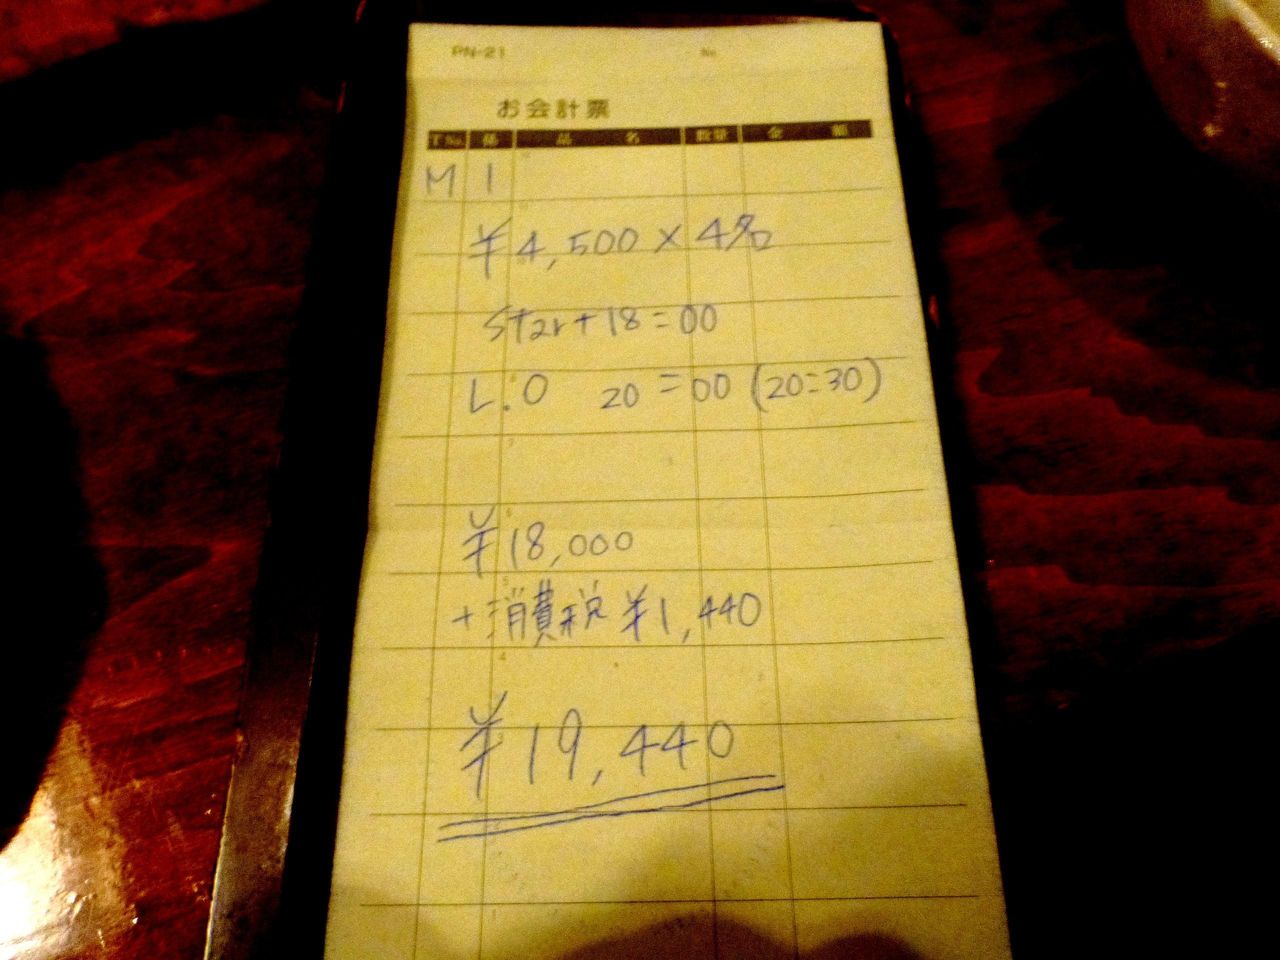 PN-21 No.
お会計票
T.No. 係 品 名 数量 金 額
M 1
¥4,500×4名
Start 18=00
L.O 20=00 (20=30)
¥18,000
+消費税 ¥1,440
¥19,440